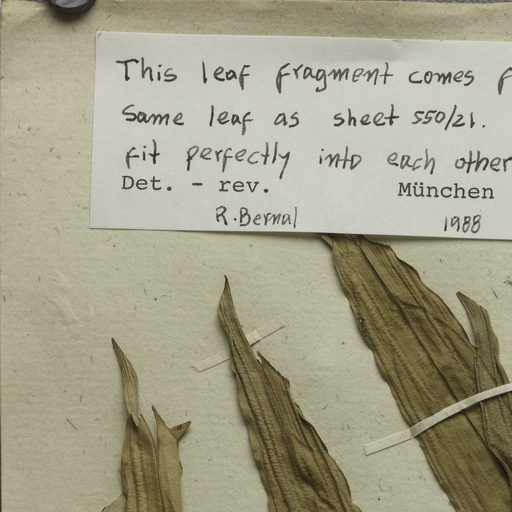 This leaf fragment comes f
Same leaf as sheet 550/21.
fit perfectly into each other
Det. - rev. München
R. Bernal 1988